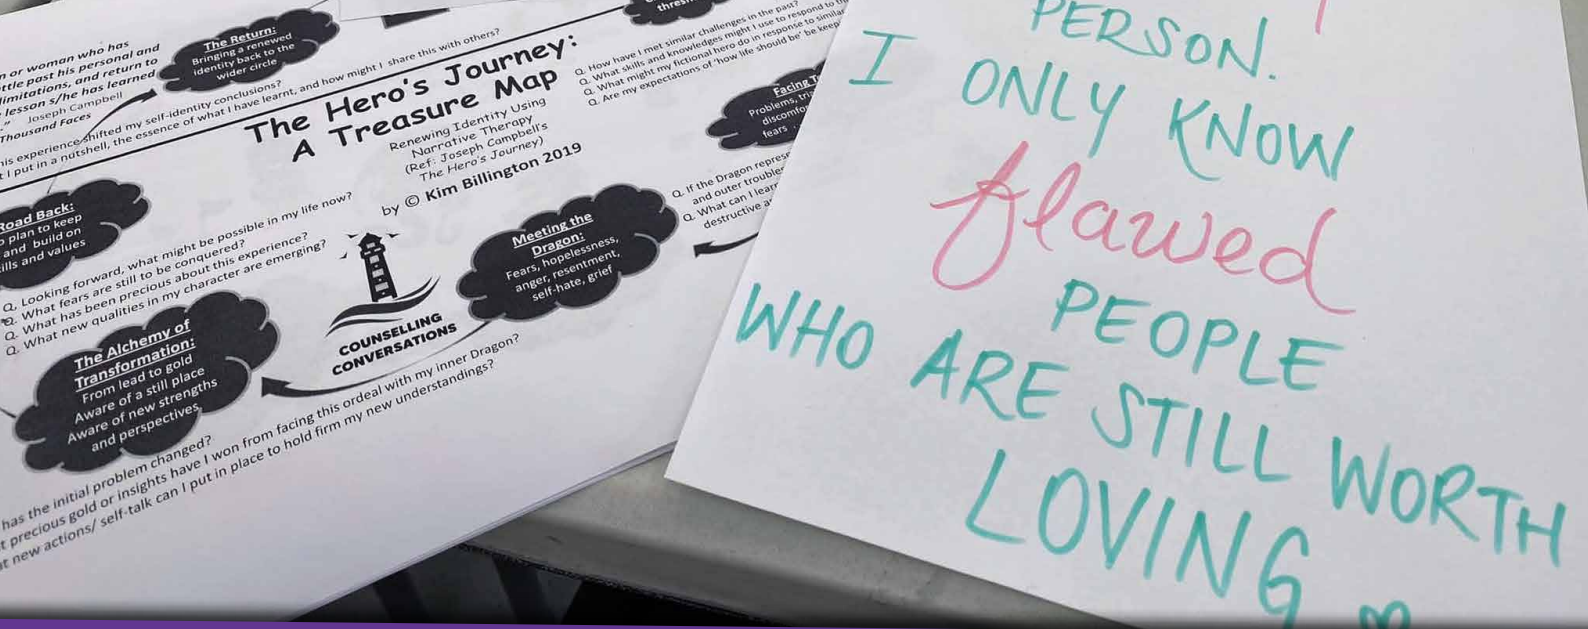 or woman who has
ttle past his personal and
limitations, and return to
lesson s/he has learned
Joseph Campbell
Thousand Faces
The Return:
Bringing a renewed
identity back to the
wider circle
his experience shifted my self-identity conclusions?
I put in a nutshell, the essence of what I have learnt, and how might I share this with others?
The Hero's Journey:
A Treasure Map
Renewing Identity Using
Narrative Therapy
(Ref: Joseph Campbell's
The Hero's Journey)
by © Kim Billington 2019
Q. How have I met similar challenges in the past?
Q. What skills and knowledges might I use to respond to
Q. What might my fictional hero do in response to similar
Q. Are my expectations of 'how life should be' be keep
Facing T
Problems, tri
discomfo
fears
Q. If the Dragon repres
and outer trouble
Q. What can I lear
destructive a
Meeting the
Dragon:
Fears, hopelessness,
anger, resentment,
self-hate, grief
Road Back:
plan to keep
and build on
ills and values
Q. Looking forward, what might be possible in my life now?
Q. What fears are still to be conquered?
Q. What has been precious about this experience?
Q. What new qualities in my character are emerging?
COUNSELLING
CONVERSATIONS
The Alchemy of
Transformation:
From lead to gold
Aware of a still place
Aware of new strengths
and perspectives
has the initial problem changed?
t precious gold or insights have I won from facing this ordeal with my inner Dragon?
at new actions/ self-talk can I put in place to hold firm my new understandings?
PERSON.
I ONLY KNOW
flawed
PEOPLE
WHO ARE STILL WORTH
LOVING